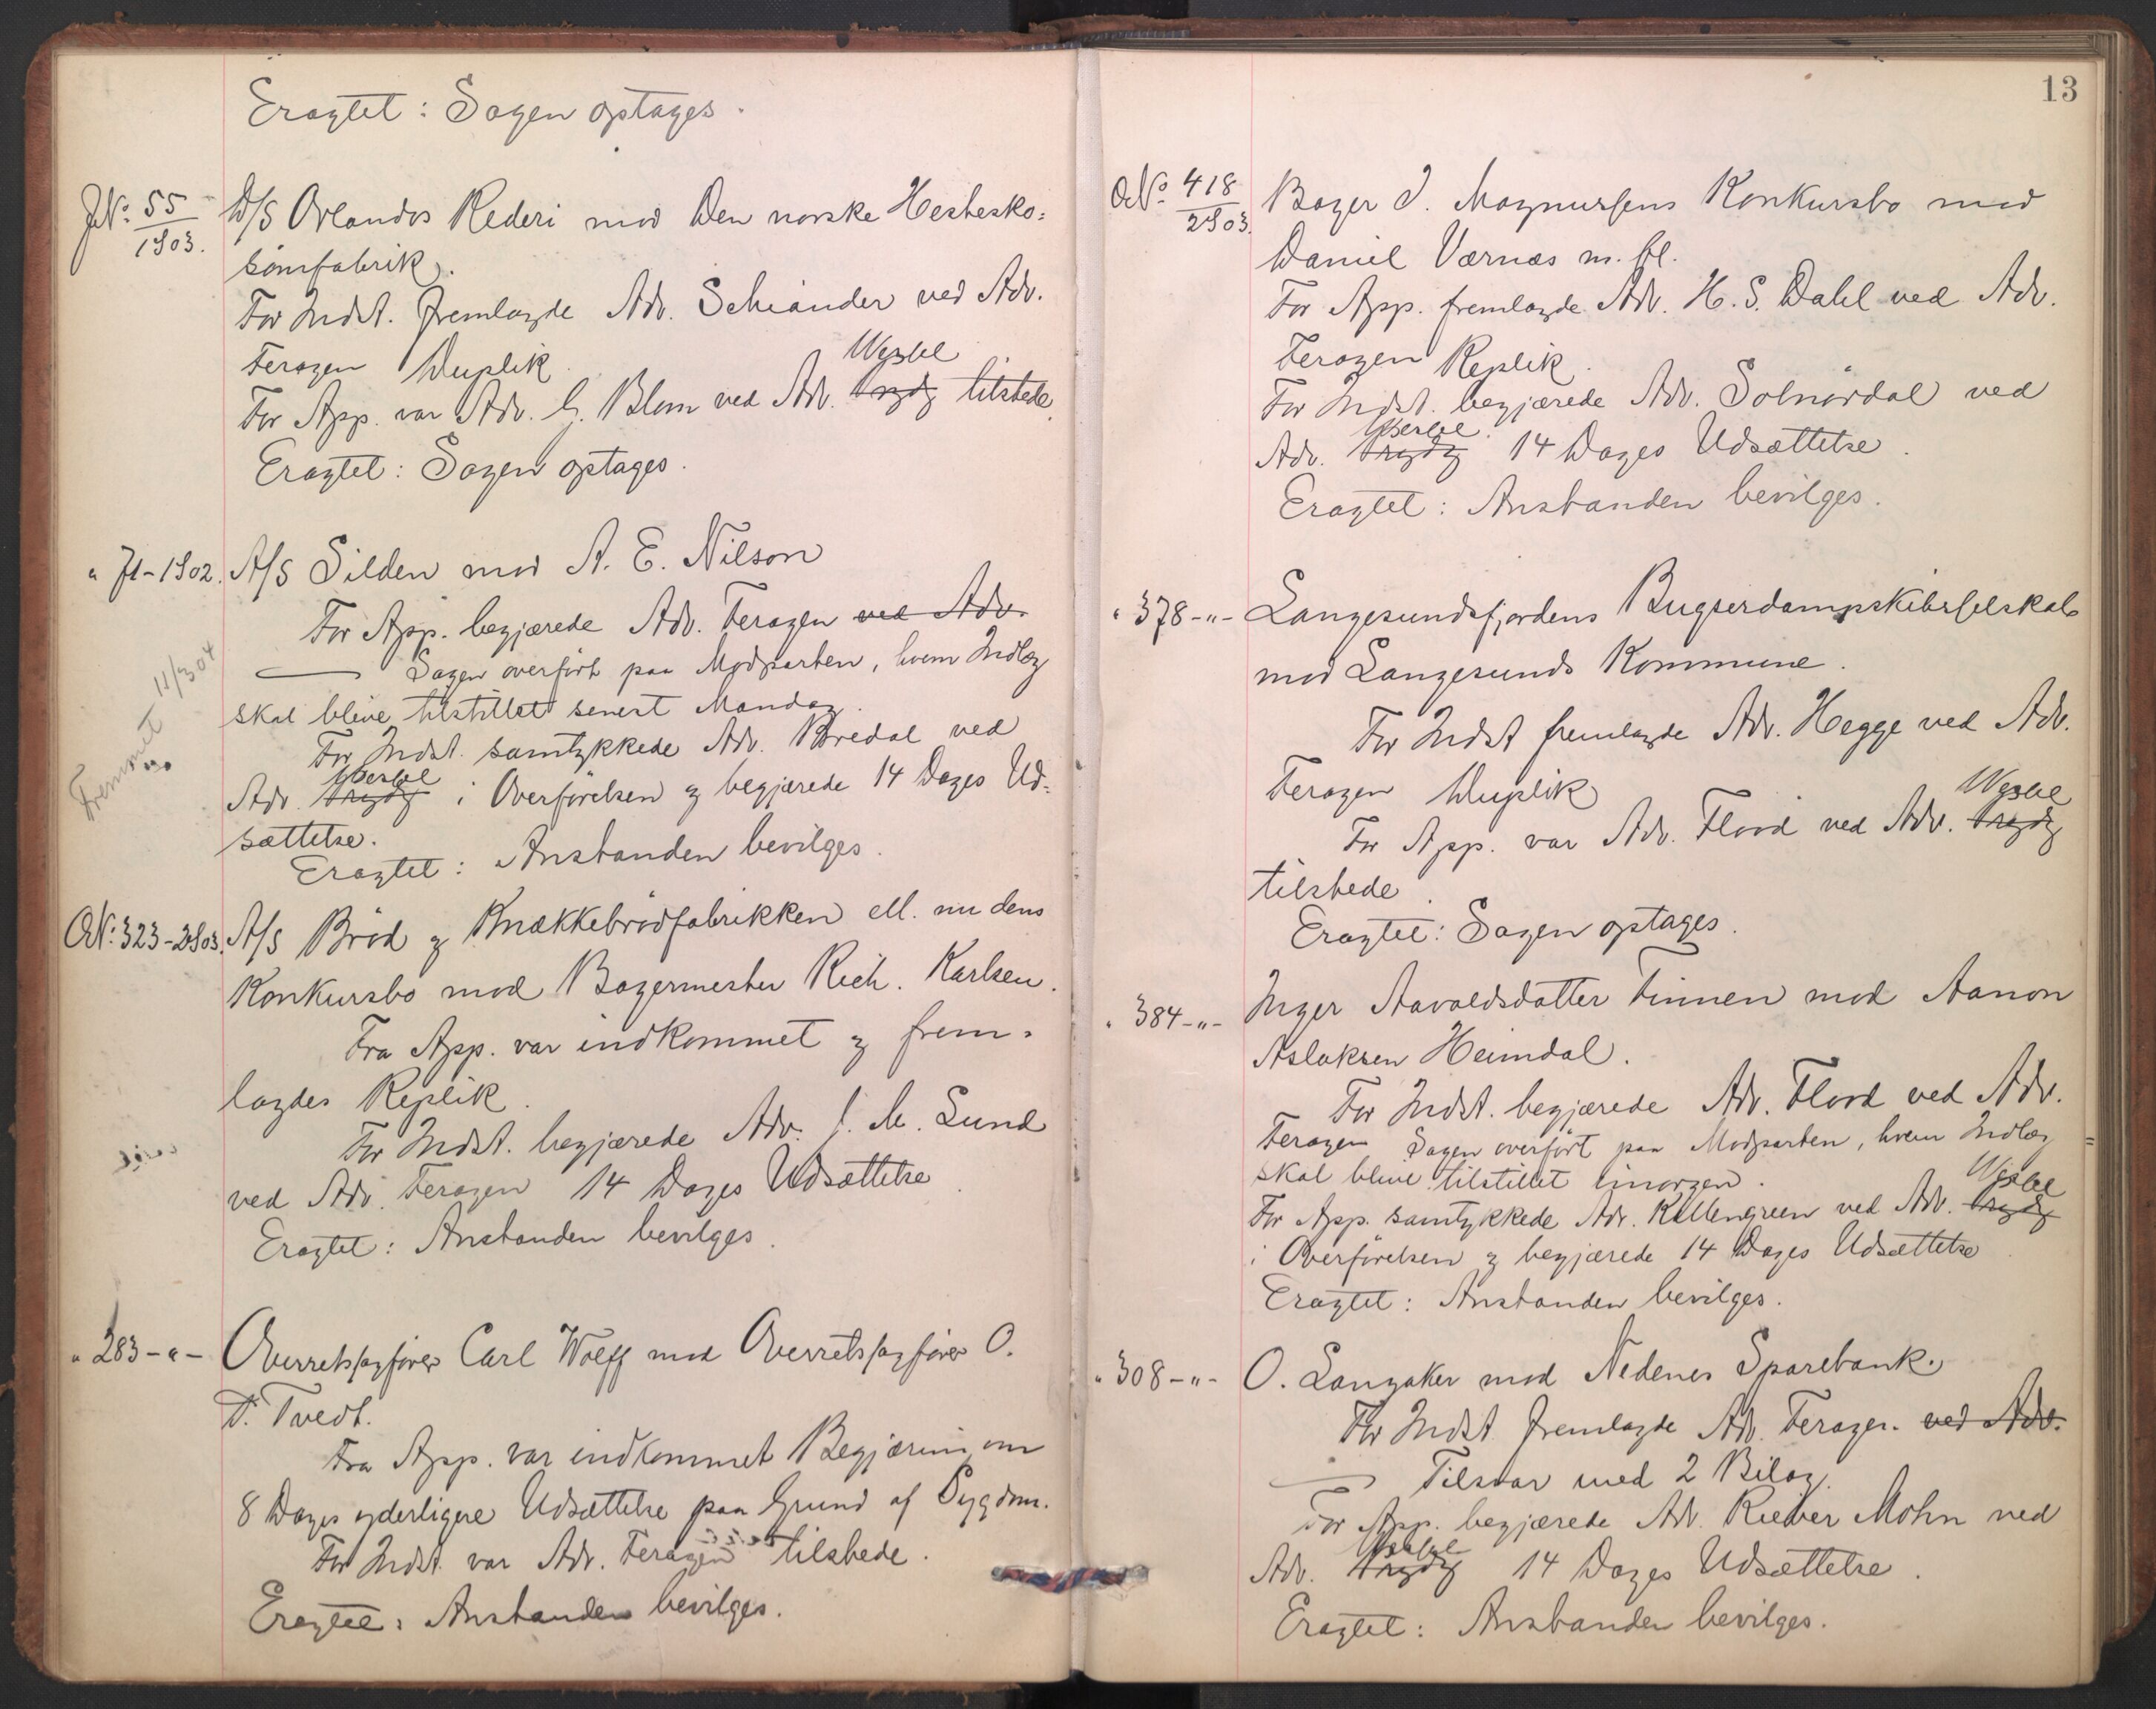 Eragtet: Sagen optages.
JNo: 55/1903. D/S Orlandos Rederi mod Den norske Hestesko=
sömfabrik.
For Indst. fremlagde Adv. Schiander ved Adv.
Feragen Duplik.
For App. var Adv. G. Blom ved Adv. tilstede.
Eragtet: Sagen optages.
" 71-1902. A/S Silden mod A. E. Nilson
For App. begjærede Adv. Feragen ved Adv.
Sagen overfört paa Modparten, hvem Indlæg
skal blive tilstillet senest Mandag.
For Indst. samtykkede Adv. Bredal ved
Adv. i Overförelsen og begjærede 14 Dages Ud=
sættelse.
Eragtet: Anstanden bevilges.
Fremmet 11/3 04
ONo: 323-2903. A/S Bröd og Knækkebrödfabrikken ell. nu dens
Konkursbo mod Bagermester Rich. Karlsen.
Fra App. var indkommet og frem=
lagdes Replik.
For Indst. begjærede Adv. J. M. Lund
ved Adv. Feragen 14 Dages Udsættelse.
Eragtet: Anstanden bevilges.
" 283-"- Overretssagförer Carl Wolff mod Overretssagförer O.
T. Tvedt.
Fra App. var indkommet Begjæring om
8 Dages yderligere Udsættelse paa Grund af Sygdom.
For Indst. var Adv. Feragen tilstede.
Eragtet: Anstanden bevilges.
13
ONo. 418/2903. Bager J. Magnussens Konkursbo mod
Daniel Værnæs m. fl.
For App. fremlagde Adv. H. S. Dahl ved Adv.
Feragen Replik.
For Indst. begjærede Adv. Solnördal ved
Adv. 14 Dages Udsættelse.
Eragtet: Anstanden bevilges.
" 378-"- Langesundsfjordens Bugserdampskibsselskab
mod Langesunds Kommune.
For Indst fremlagde Adv. Hegge ved Adv.
Feragen Duplik
For App. var Adv. Flood ved Adv.
tilstede.
Eragtet: Sagen optages.
" 384-"- Inger Aavoldsdatter Finnen mod Aanon
Aslaksen Heimdal.
For Indst. begjærede Adv. Flood ved Adv.
Feragen Sagen overfört paa Modparten, hvem Indlæg
skal blive tilstillet imorgen.
For App. samtykkede Adv. Kallengreen ved Adv.
i Overförelsen og begjærede 14 Dages Udsættelse.
Eragtet: Anstanden bevilges.
" 308-"- O. Langaker mod Nedenes Sparebank.
For Indst fremlagde Adv. Feragen ved Adv.
Tilsvar med 2 Bilag.
For App. begjærede Adv. Rieber Mohn ved
Adv. 14 Dages Udsættelse.
Eragtet: Anstanden bevilges.